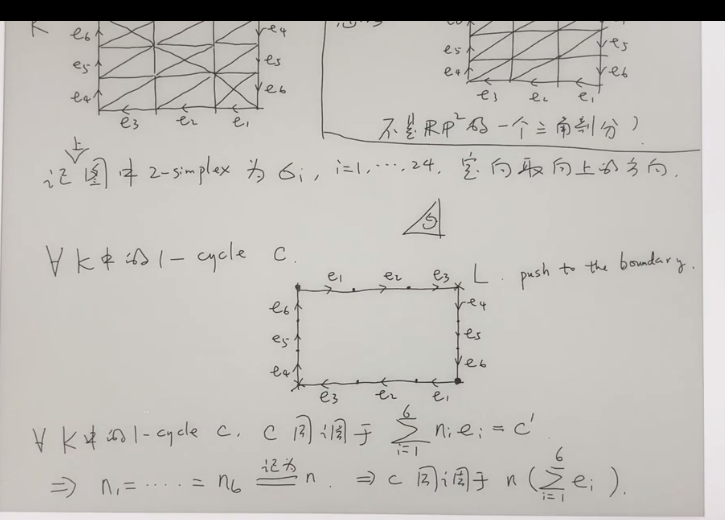 K e6 e4
e5 e5
e4 e6
e3 e2 e1
e5 e5
e4 e6
e3 e2 e1
不是 RP² 的一个三角剖分）
记上图中 2-simplex 为 σi, i=1,⋯,24. 定向取向上的方向.
∀ K中的 1-cycle c.
e1 e2 e3 L. push to the boundary.
e6 e4
e5 e5
e4 e6
e3 e2 e1
∀ K中的1-cycle c. c 同调于 ∑_{i=1}^{6} ni ei = c'
⇒ n1 = ⋯⋯ = n6 记为 n. ⇒ c 同调于 n(∑_{i=1}^{6} ei).